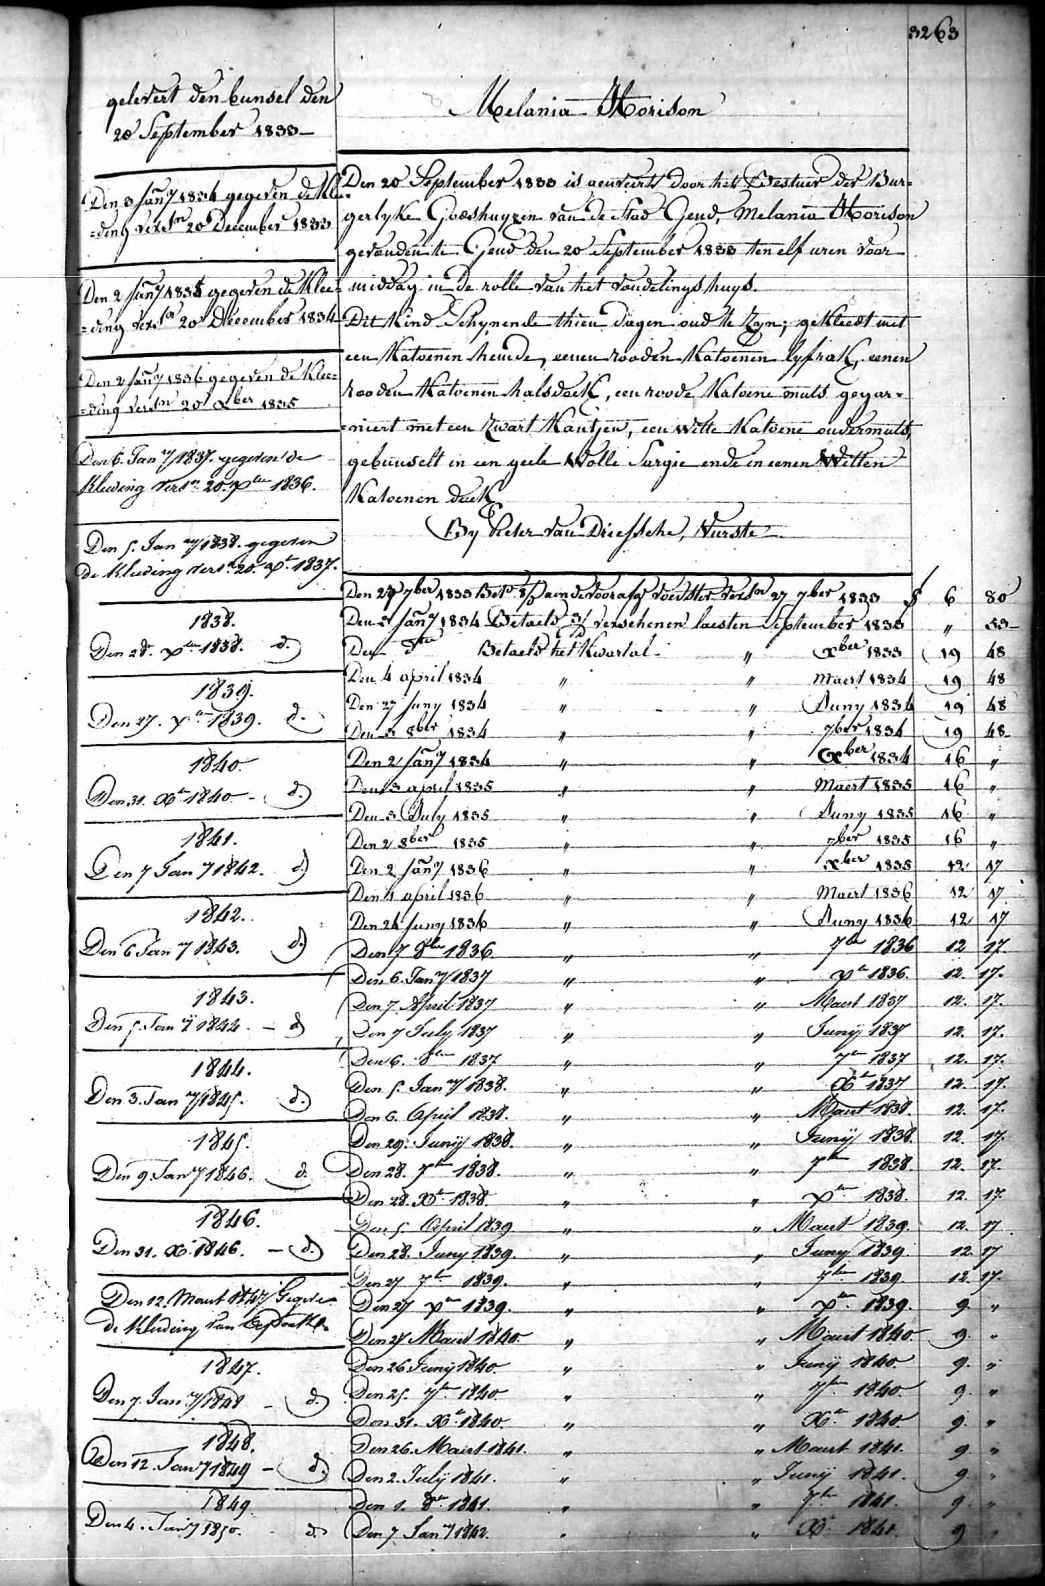 3263
gelevert den bunsel den
28 September 1833
Melania Horison
Den 3 Jany 1834 gegeven de Klee-
=ding versn 20 December 1833
Den 2 Jany 1835 gegeven de Klee-
=ding versn 20 December 1834
Den 2 Jany 1836 gegeven de Klee=
=ding versn 20 Xber 1835
Den 6. Jany 1837. gegeven de
Kleeding versn 20. Xber 1836.
Den 5. Jany 1838. gegeven
de Kleeding versn 20. Xr 1837.
1838.
Den 28. Xber 1838. d.
1839.
Den 27. Xber 1839. d.
1840.
Den 31. Xr 1840 - d.
1841.
Den 7 Jany 1842. d.
1842.
Den 6 Jany 1843. d.
1843.
Den 5. Jany 1844. - d
1844.
Den 3. Jany 1845. d.
1845.
Den 9. Jany 1846. d.
1846.
Den 31. X. 1846. - d.
Den 12. Maert 1847 Gegeven
de Kleeding van
1847.
Den 7. Jany 1848 - d.
1848.
Den 12. Jany 1849 - d.
1849.
Den 4. Jany 1850. d.
Den 20 September 1833 is aenveirt door het Bestuer der Bur-
gerlyke Godshuyzen van de Stad Gend, Melania Horison
gevonden te Gend den 20 September 1833 ten elf uren voor-
middag in de rolle van het vondelings huys.
Dit Kind schynende thien dagen oud te zyn; gekleedt met
een Katoenen hemde, eenen rooden Katoenen lyfrak, eenen
rooden Katoenen halsdoek, een roode Katoene muts gegar-
=niert met een zwart Kantjen, een witte Katoene ondermuts,
gebunselt in een geele Wolle Sargie ende in eenen Witten
Katoenen doek
By Pieter van Driessche, Nurste
Den 27 7ber 1833 Bet. aen de voorafg. voedster versn 27 7ber 1833 f 6 80
Den 3 Jany 1834 Betaeld verschenen laesten September 1833 " 33
Den dto Betaeld het Kwartal " Xber 1833 19 48
Den 4 april 1834 " " Maert 1834 19 48
Den 27 Juny 1834 " " Juny 1834 19 48
Den 3 8ber 1834 " " 7ber 1834 19 48
Den 2 Jany 1834 " " Xber 1834 16 "
Den 3 april 1835 " " Maert 1835 16 "
Den 3 July 1835 " " Juny 1835 16 "
Den 2 8ber 1835 " " 7ber 1835 16 "
Den 2 Jany 1836 " " Xber 1835 12 17
Den 4 april 1836 " " Maert 1836 12 17
Den 24 Juny 1836 " " Juny 1836 12 17
Den 7 8ber 1836 " " 7ber 1836 12 17.
Den 6. Jany 1837 " " Xr 1836. 12. 17.
Den 7. April 1837 " " Maert 1837 12. 17.
Den 7 July 1837 " " Junij 1837 12. 17.
Den 6. 8ber 1837 " " 7ber 1837 12. 17.
Den 5. Jany 1838. " " Xr 1837 12. 17.
Den 6. April 1838. " " Maert 1838. 12. 17.
Den 29. Junij 1838. " " Junij 1838. 12. 17.
Den 28. 7ber 1838. " " 7ber 1838. 12. 17.
Den 28. Xr 1838. " " Xber 1838. 12. 17.
Den 5. April 1839 " " Maert 1839. 12. 17
Den 28. Juny 1839. " " Juny 1839 12 17
Den 27 7ber 1839. " " 7ber 1839. 12. 17.
Den 27 Xber 1839. " " Xber 1839. 9. "
Den 27 Maert 1840 " " Maert 1840 9. "
Den 26 Junij 1840. " " Junij 1840 9. "
Den 25. 7br 1840 " " 7br 1840 9. "
Den 31. Xr 1840 " " Xr 1840 9. "
Den 26. Maert 1841. " " Maert 1841. 9 "
Den 2. Julij 1841. " " Junij 1841. 9 "
Den 1. 8r 1841. " " 7ber 1841. 9. "
Den 7 Jany 1842. " " Xr 1841. 9 "